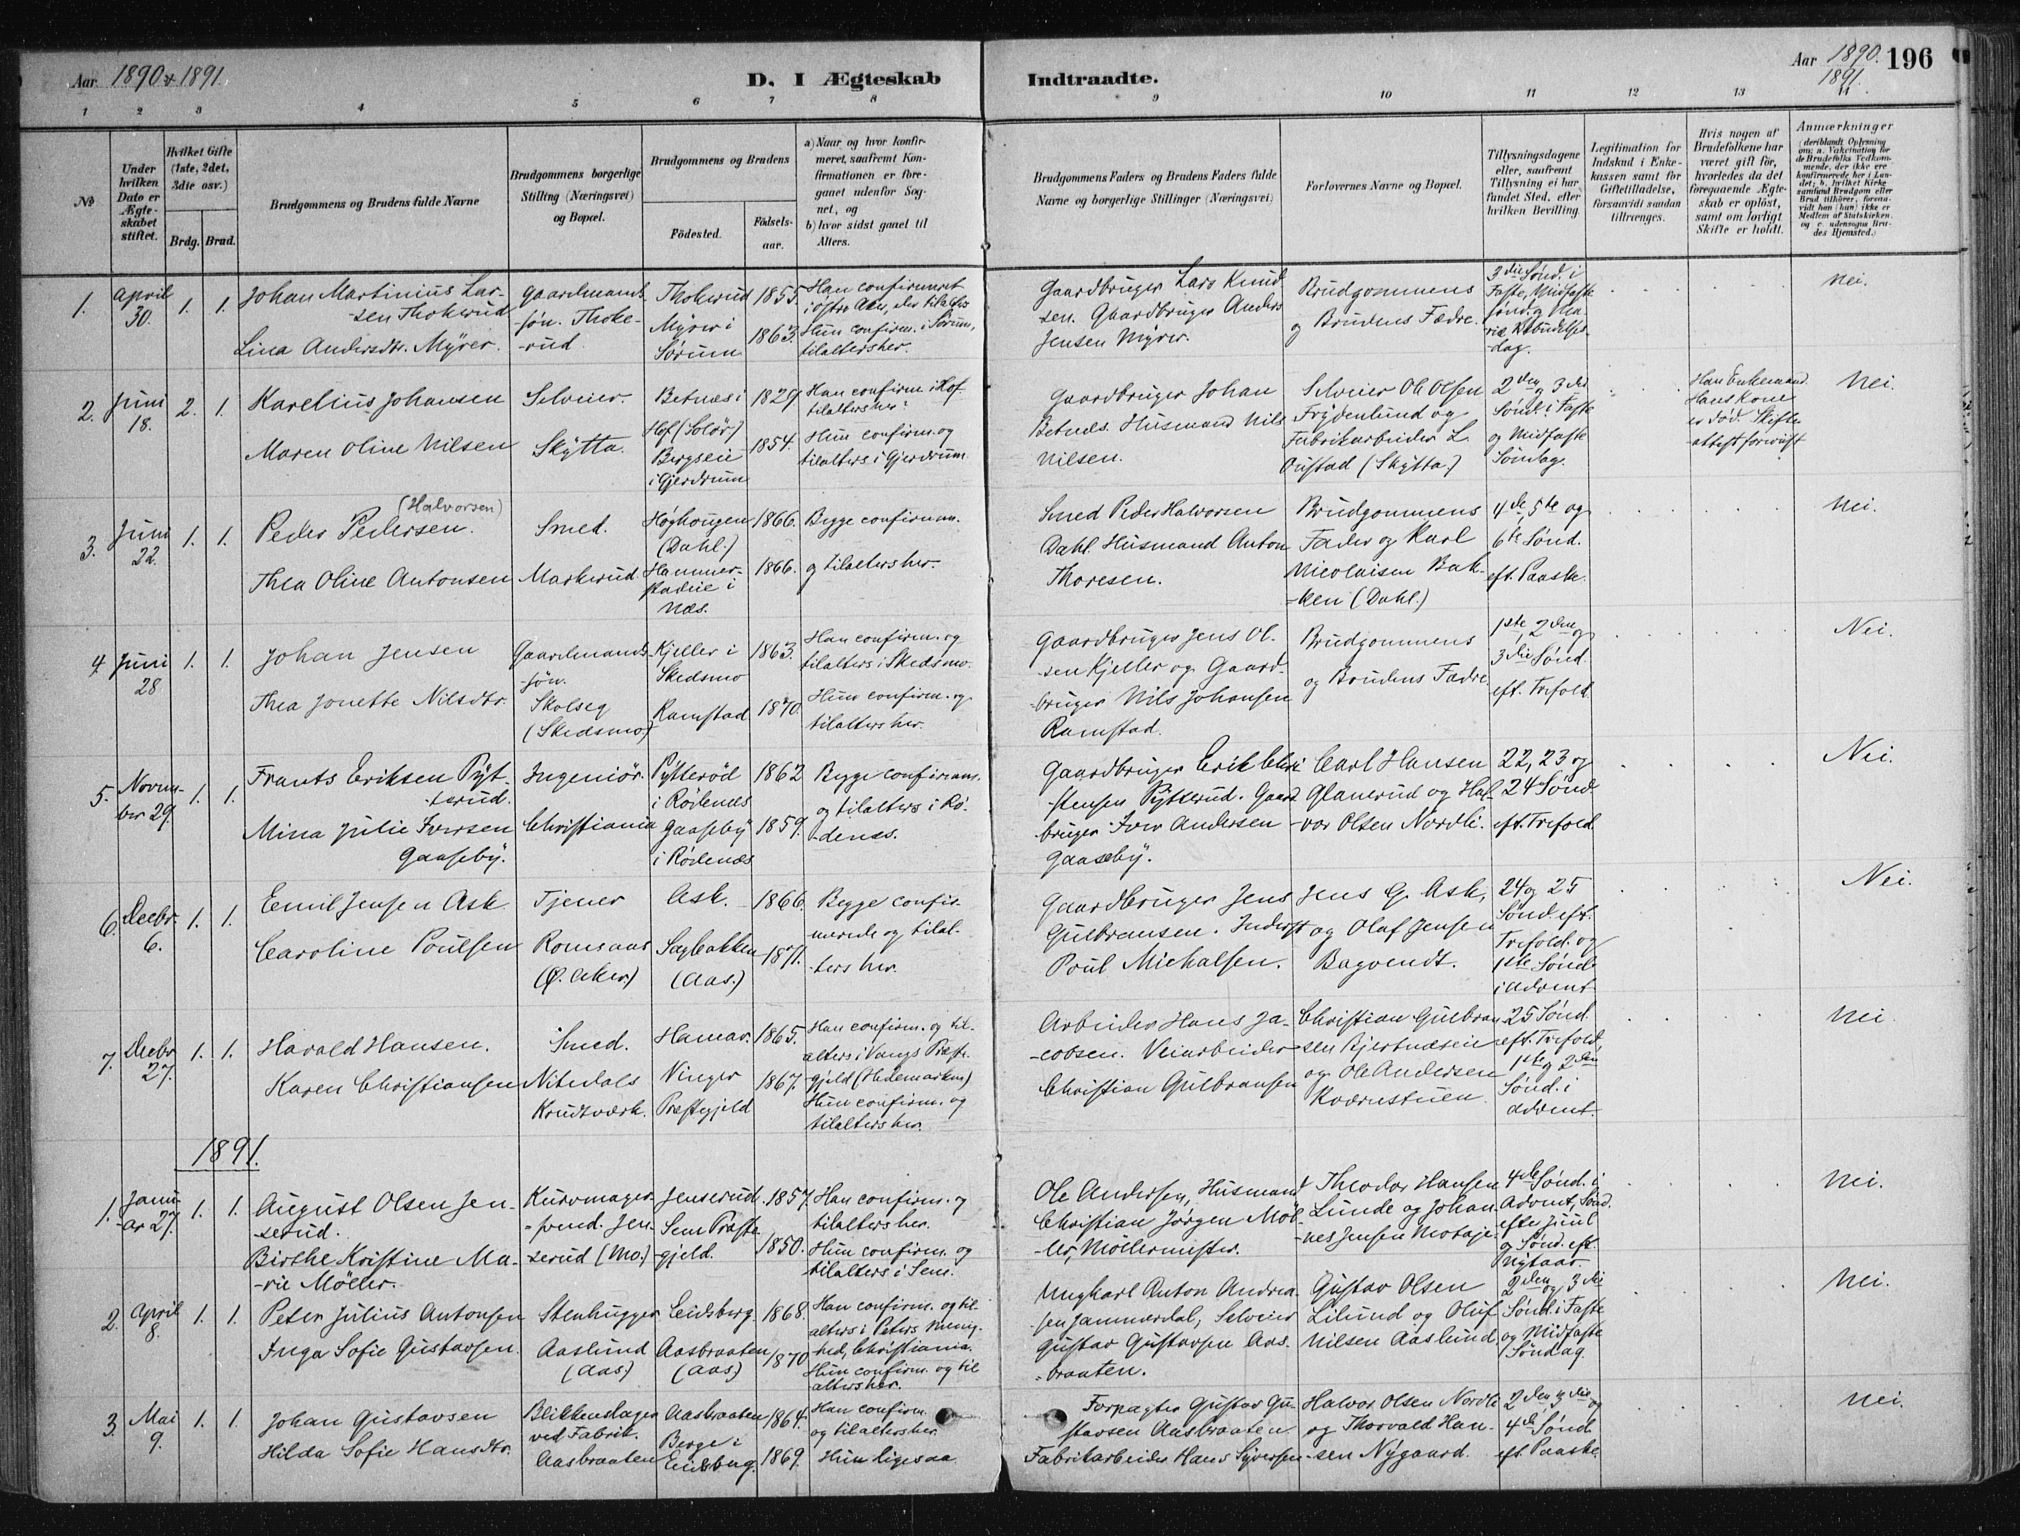 Aar 1890 & 1891.
D. I Ægteskab Indtraadte.
Aar 1890. 1891. 196
1 2 3 4 5 6 7 8 9 10 11 12 13
№
Under hvilken Dato er Ægteskabet stiftet.
Hvilket Gifte (1ste, 2det, 3die osv.)
Brdg. Brud.
Brudgommens og Brudens fulde Navne
Brudgommens borgerlige Stilling (Næringsvei) og Bopæl.
Brudgommens og Brudens
Fødested. Fødselsaar.
a) Naar og hvor konfirmeret, saafremt Konfirmationen er foregaaet udenfor Sognet, og
b) hvor sidst gaaet til Alters.
Brudgommens Faders og Brudens Faders fulde Navne og borgerlige Stillinger (Næringsvei)
Forlovernes Navne og Bopæl.
Tillysningsdagene eller, saafremt Tillysning ei har fundet Sted, efter hvilken Bevilling.
Legitimation for Indskud i Enkekassen samt for Giftetilladelse, forsaavidt saadan tiltrænges.
Hvis nogen af Brudefolkene har været gift før, hvorledes da det foregaaende Ægteskab er opløst, samt om lovligt Skifte er holdt.
Anmærkninger
1. April 30. 1. 1.
Johan Martinius Larsen Thokerud
Lina Andersdtr. Myrer.
Gaardmandssøn. Thokerud.
Thokerud 1855
Myrer i Sørum 1863.
Han confirmeret i Østre Aker, der tilalters
Hun confirm. i Sørum, tilalters her.
Gaardbruger Lars Knudsen. Gaardbruger Anders Jensen Myrer.
Brudgommens og Brudens Fædre.
3die Sønd. i Faste, Midfaste Sønd. og Mariæ Bebudelsesdag.
nei.
2. Juni 18. 2. 1.
Karelius Johansen
Maren Oline Nilsen
Selveier. Skytta.
Betnæs i Hof (Solør) 1829
Bergseie i Gjerdrum 1854.
Han confirm. i Hof tilalters her.
Hun confirm. og tilalters i Gjerdrum.
Gaardbruger Johan Betnæs. Husmand Nils Nilsen.
Selveier Ole Olsen Frydenlund og Fabrikarbeider L. Oustad (Skytta.)
2den og 3die Sønd. i Faste og Midfaste Søndag.
Han Enkemand. Hans Kone er død. Skifteattest forevist
Nei.
3. Juni 22. 1. 1.
Peder Pedersen. (Halvorsen)
Thea Oline Antonsen
Smed. Markerud
Høghougen (Dahl.) 1866.
Hammerstadeie i Næs. 1866.
Begge confirmm. og tilalters her.
Smed Peder Halvorsen Dahl. Husmand Anton Thoresen.
Brudgommens Fader og Karl Nicolaisen Bakken (Dahl.)
4de, 5te og 6te Sønd. eft. Paaske.
nei.
4 Juni 28 1. 1.
Johan Jensen
Thea Jonette Nilsdtr.
Gaardmandssøn. Skolseg (Skedsmo)
Kjeller i Skedsmo 1863.
Ramstad 1870.
Han confirm. og tilalters i Skedsmo.
Hun confirm. og tilalters her.
Gaardbruger Jens Olsen Kjeller og Gaardbruger Nils Johansen Ramstad.
Brudgommens og Brudens Fædre.
1ste 2den og 3die Sønd. eft. Trefold.
Nei.
5. November 29. 1. 1.
Frants Eriksen Pytterud.
Mina Julie Iversen Gaaseby.
Ingeniør. Christiania
Pytterød i Rødenæs 1862
Gaaseby i Rødenæs 1859.
Begge confirmm. og tilalters i Rødenes.
Gaardbruger Erik Christensen Pytterud. Gaardbruger Iver Andersen Gaaseby.
Carl Hansen Glanerud og Halvor Olsen Nordli.
22, 23 og 24 Sønd. eft. Trefold.
Nei.
6. Decbr. 6. 1. 1.
Emil Jensen Ask
Caroline Poulsen
Tjener Romsaas (Ø. Aker.)
Ask. 1866.
Sagbakken (Aas.) 1871.
Begge confirmerede og tilalters her.
Gaardbruger Jens Gulbransen. Inderst Poul Michalsen.
Jens G. Ask, og Olaf Jensen Bagvendt.
24 og 25 Sønd. eft. Trefold. og 1ste Sønd. i Advent
Nei.
7. Decbr 27. 1. 1.
Harald Hansen.
Karen Christiansen
Smed. Nitedals Krudtværk.
Hamar. 1865.
Vinger Præstegjeld 1867.
Han confirm. og tilalters i Vangs Præstegjeld (Hedemarken)
Hun confirm. og tilalters her.
Arbeider Hans Jacobsen. Veiarbeider Christian Gulbransen
Christian Gulbransen Bjertnæseie og Ole Andersen Kværnstuen.
25 Sønd. eft. Trefold, 1ste og 2den Sønd. i advent.
nei.
1891.
1. Januar 27. 1. 1.
August Olsen Jenserud.
Birthe Kristine Marie Möller.
Kurvmagersvend. Jenserud (Mo.)
Jenserud. 1857.
Sem Præstegjeld. 1850.
Han confirm. og tilalters her.
Hun confirm. og tilalters i Sem.
Ole Andersen, Husmand
Christian Jørgen Möller, Møllermester.
Theodor Hansen Lunde og Johannes Jensen Motaje.
4de Sønd. i Advent, Sønd. efter Juul og Sønd. eft. Nytaar.
nei.
2. April 8. 1. 1.
Peter Julius Antonsen
Inga Sofie Gustavsen.
Stenhugger Aaslund (Aas)
Eidsberg. 1868.
Aasbraaten (Aas) 1870
Han confirm. og tilalters i Peters Menighed, Christiania.
Hun confirm. og tilalters her.
Ungkarl Anton Andreasen Jammerdal, Selveier Gustav Gustavsen Aasbraaten.
Gustav Olsen Lilund og Oluf Nilsen Aaslund.
2den og 3die Sønd. i Faste og Midfaste Søndag.
nei.
3. Mai 9. 1. 1.
Johan Gustavsen
Hilda Sofie Hansdtr.
Blikkenslager ved Fabrik. Aasbraaten
Aasbraaten 1864.
Berge i Eidsberg. 1869.
Han confirm. og tilalters her.
Hun ligesaa
Forpagter Gustav Gustavsen Aasbraaten
Fabrikarbeider Hans Syversen
Halvor Olsen Nordli og Thorvald Hansen Nygaard.
2den, 3die og 4de Sønd. eft. Paaske.
nei.